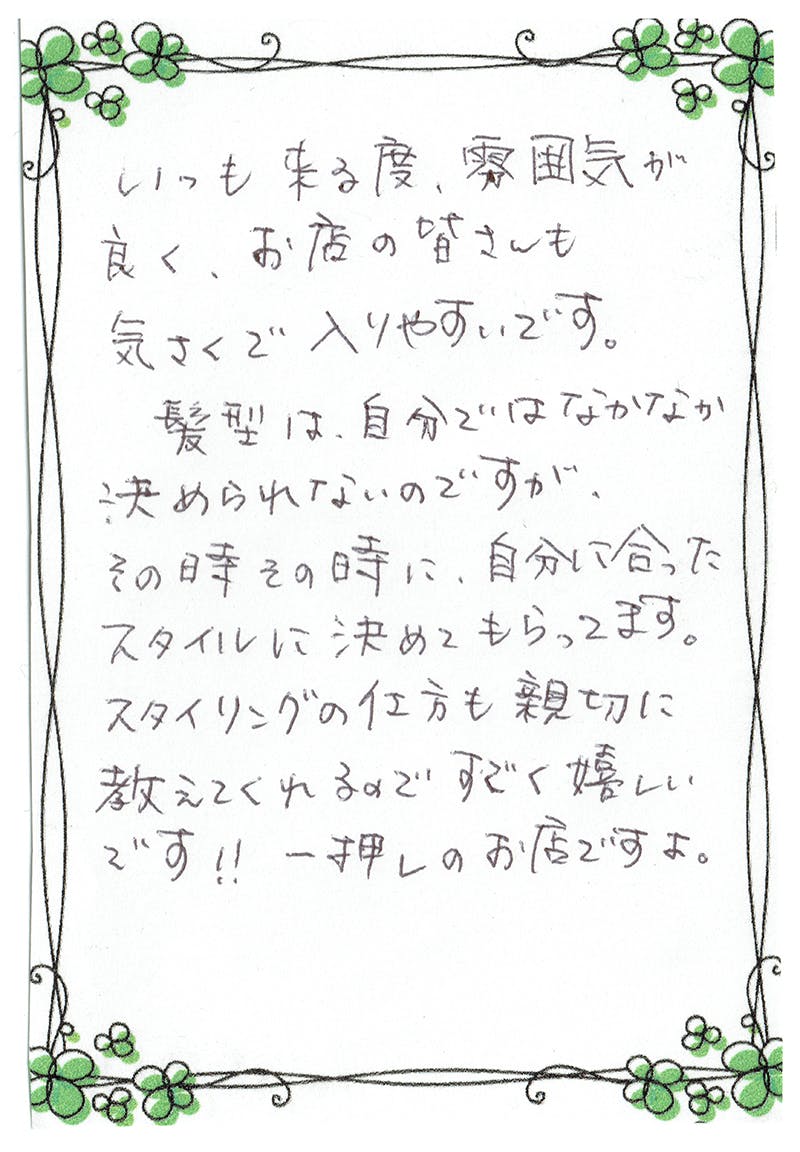 いつも来る度、雰囲気が
良く、お店の皆さんも
気さくで入りやすいです。
髪型は、自分ではなかなか
決められないのですが、
その時その時に、自分に合った
スタイルに決めてもらってます。
スタイリングの仕方も親切に
教えてくれるのですごく嬉しい
です!! 一押しのお店ですよ。